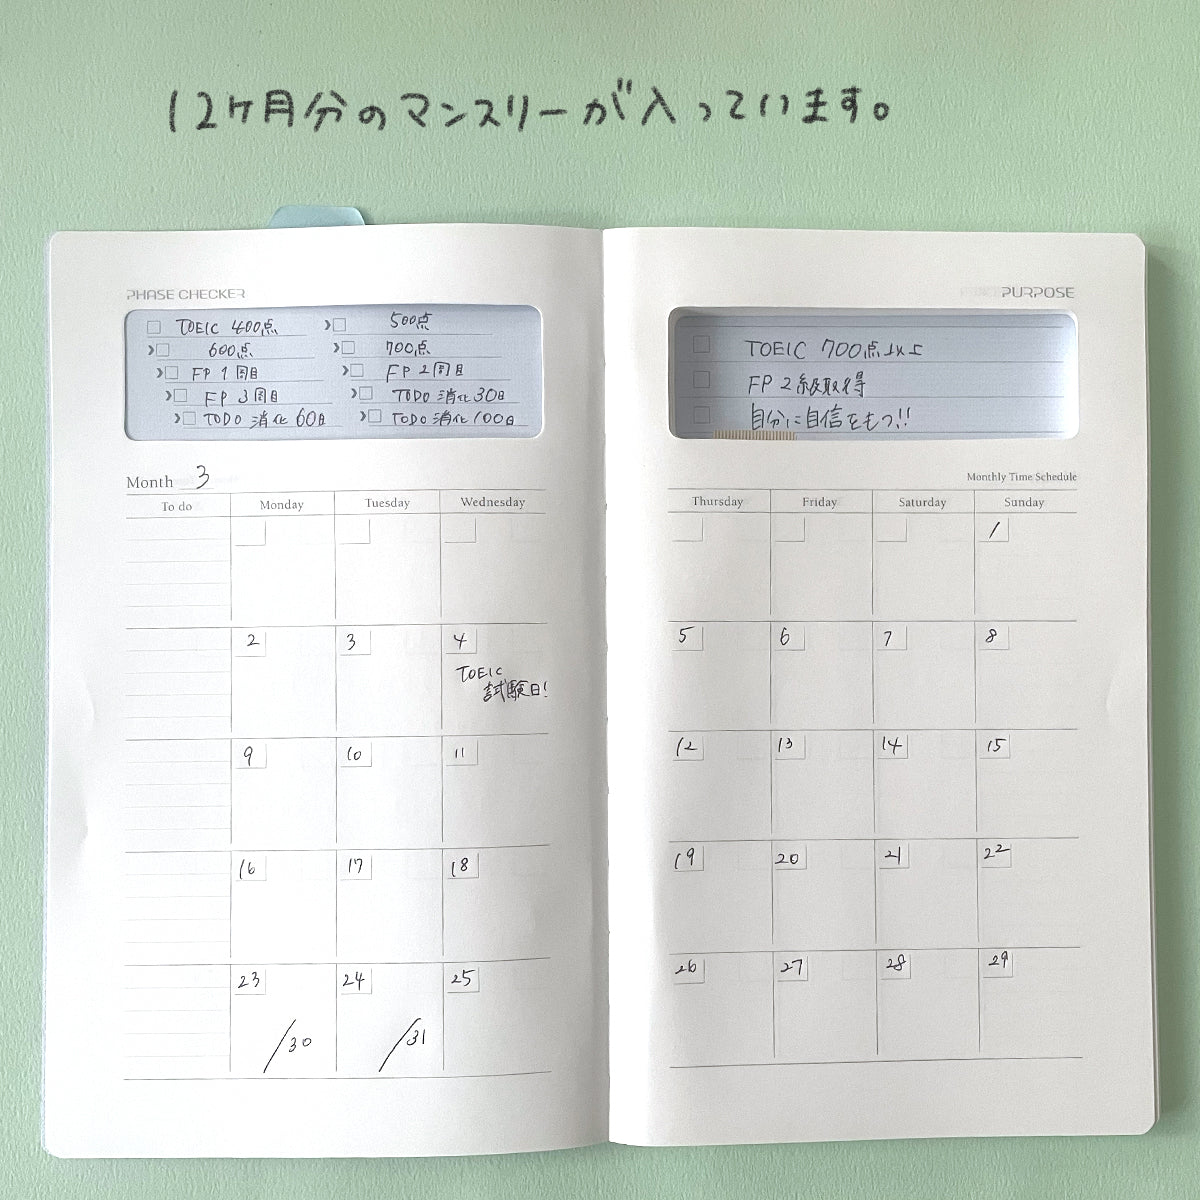 12ケ月分のマンスリーが入っています。
PHASE CHECKER
TOEIC 400点 500点
600点 700点
FP 1周目 FP 2周目
FP 3周目 TODO 消化 30日
TODO 消化 60日 TODO 消化 100日
PURPOSE
TOEIC 700点以上
FP 2級取得
自分に自信をもつ!!
Month 3
To do Monday Tuesday Wednesday
2 3 4
TOEIC
試験日!
9 10 11
16 17 18
23 24 25
/30 /31
Monthly Time Schedule
Thursday Friday Saturday Sunday
1
5 6 7 8
12 13 14 15
19 20 21 22
26 27 28 29